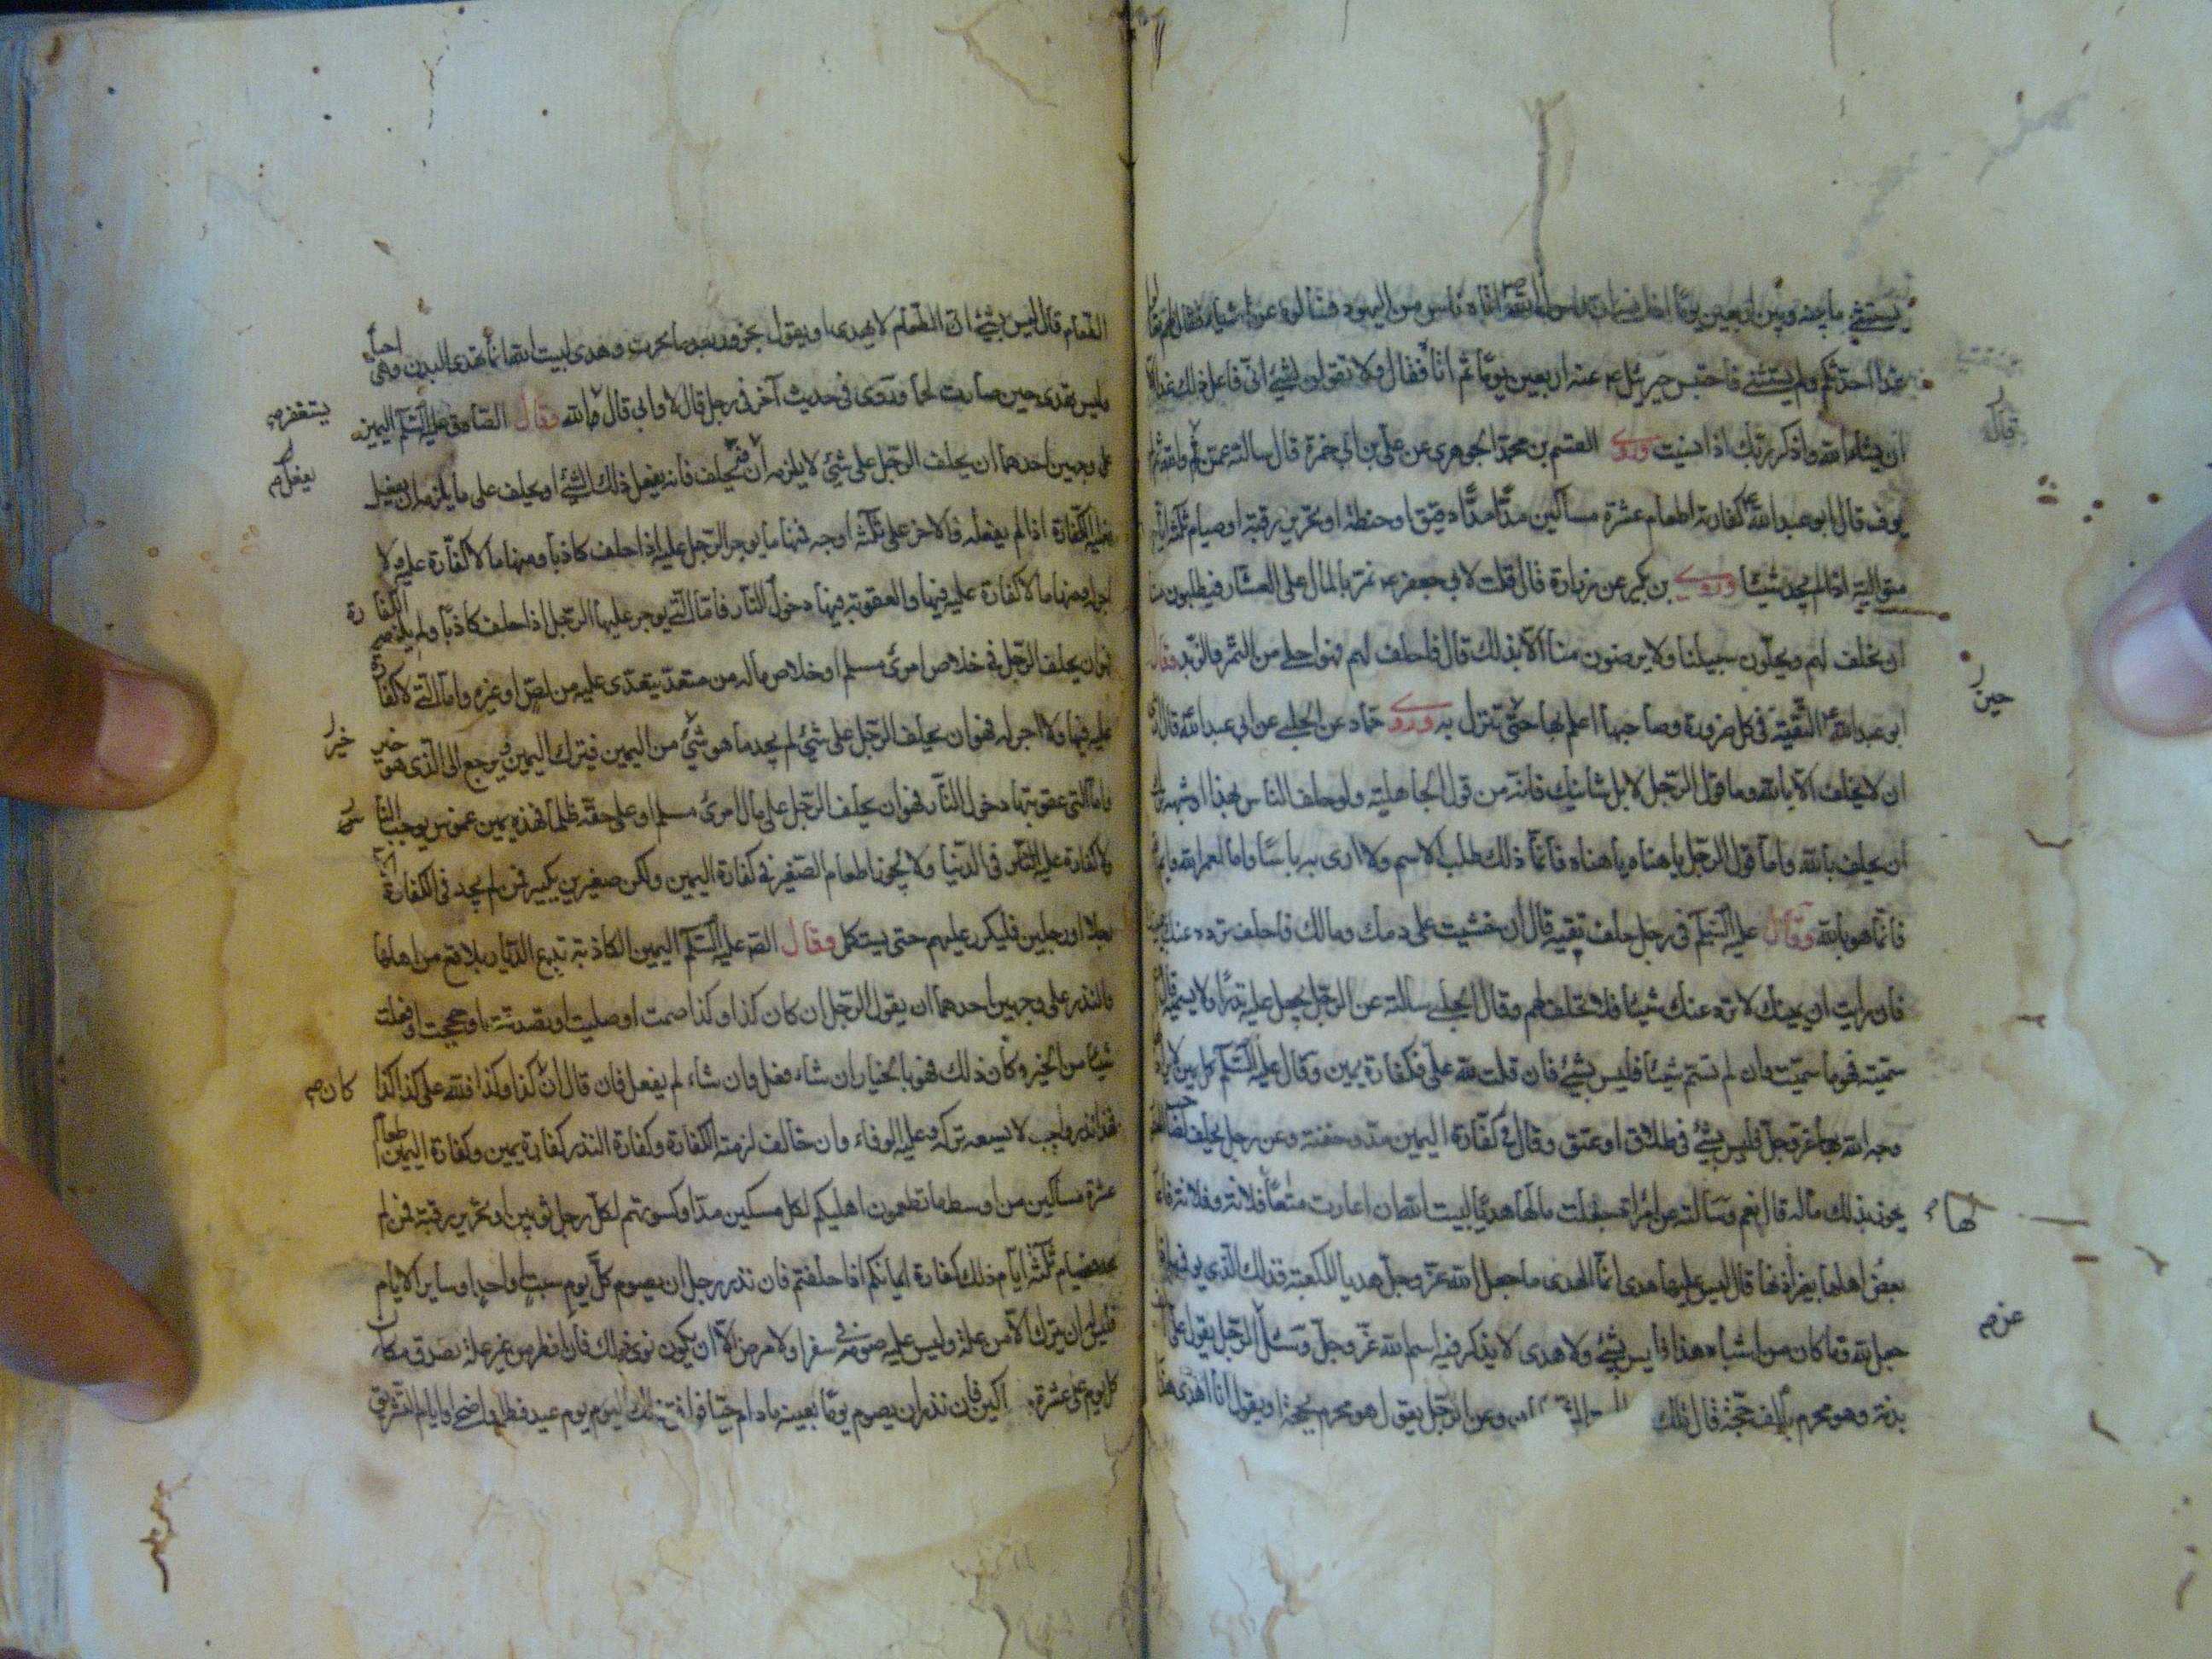 يستثني ما بينه وبين اربعين يوما اذا نسي ان رسول الله اتاه ناس من اليهود فسالوه عن اشياء فقال لهم تعالوا
غدا احدثكم ولم يستثن فاحتبس جبرئيل ع عنه اربعين يوما ثم اتاه فقال ولا تقولن لشئ انى فاعل ذلك غدا الا
ان يشاء الله واذكر ربك اذا نسيت وروى القسم بن محمد الجوهرى عن على بن ابى حمزة قال سالته عمن قال والله ثم لم
يوف قال ابو عبد الله ع كفارته اطعام عشرة مساكين مدا مدا دقيق او حنطة او تحرير رقبة او صيام ثلثة ايام
متوالية اذا لم يجد شيئا وروى بن بكير عن زرارة قال قلت لابى جعفر ع نمر بالمال على العشار فيطلبون منا
ان نحلف لهم ويخلون سبيلنا ولا يرضون منا الا بذلك قال فاحلف لهم فهو احلى من التمر والزبد وقال
ابو عبد الله ع التقية فى كل ضرورة وصاحبها اعلم بها حتى تنزل به وروى حماد عن الحلبى عن ابى عبد الله قال
ان لا يحلف الا بالله وما قول الرجل لا بل شانيك فانه من قول الجاهلية ولو حلف الناس بهذا او شبهه ترك
ان يحلف بالله واما قول الرجل يا هناه يا هناه فانما ذلك طلب الاسم ولا ارى به باسا واما لعمر الله وايم
فانما هو بالله وقال عليه السلم فى رجل حلف تقية قال ان خشيت على دمك ومالك فاحلف ترده عنك
فان رايت ان يمينك لا ترد عنك شيئا فلا تحلف لهم وقال الحلبى سالته عن الرجل يجعل عليه نذرا ولا يسميه قال
سميته فهو ما سميت وان لم تسم شيئا فليس بشئ فان قلت لله على فكفارة يمين وقال عليه السلم كل يمين لا يراد
وجه الله بها عز وجل فليس بشئ فى طلاق او عتق وقال فى كفارة اليمين مد وحفنة وعن رجل يحلف لصاحب
يحوز بذلك ماله قال نعم وسالته عن امرأة جعلت مالها هديا لبيت الله ان اعارت متاعا فلانة وفلانة فاعار
بعض اهلها بغير اذنها قال ليس عليها هدى انما الهدى ما جعل الله عز وجل هديا للكعبة فذلك الذى يوفى به اذا
جعل لله وما كان من اشباه هذا فليس بشئ ولا هدى لا يذكر فيه اسم الله عز وجل وسئل الرجل يقول على
بدنة وهو محرم بالف حجة قال تلك خطوات وعن الرجل يقول هو محرم بحجة او يقول انا اهدى هذا
قال
حين
لها
عزم
الطعام قال ليس بشئ ان الطعام لا يهدى او يقول بجزور بعد ما نحرت وهدى لبيت الله انما تهدى البدن وهى احياء
وليس تهدى حين صارت لحما وروى فى حديث آخر فى رجل قال لا وابى قال والله وقال الصادق عليه السلم اليمين
على وجهين احدهما ان يحلف الرجل على شئ لا يلزمه ان يحلف فانه يفعل ذلك الشئ او يحلف على ما يلزمه ان يفعل
فعليه الكفارة اذا لم يفعله فالاخر على ثلثة اوجه فمنها ما يوجر الرجل عليه اذا حلف كاذبا ومنها ما لا كفارة عليه ولا
اجر له ومنها ما لا كفارة عليه فيها والعقوبة فيها دخول النار فاما التى يوجر عليها الرجل اذا حلف كاذبا ولم يلزمه الكفارة
فهو ان يحلف الرجل فى خلاص امرئ مسلم او خلاص ماله من متعد يتعدى عليه من لص او غيره واما التى لا كفارة
عليه فيها ولا اجر له فهو ان يحلف الرجل على شئ ثم يجد ما هو خير من اليمين فيترك اليمين ويرجع الى الذى هو خير
واما التى عقوبتها دخول النار فهو ان يحلف الرجل على مال امرئ مسلم او على حقه ظلما فهذه يمين غموس يوجب النار
ولا كفارة عليه فى الدنيا ولا يجوز اطعام الصغير فى كفارة اليمين ولكن صغيرين بكبير فمن لم يجد فى الكفارة الا
رجلا او رجلين فليكرر عليهم حتى يستكمل وقال الصادق عليه السلم اليمين الكاذبة تدع الديار بلاقع من اهلها
والنذر على وجهين احدهما ان يقول الرجل ان كان كذا وكذا صمت او صليت او تصدقت او حججت او فعلت
شيئا من الخير وكان ذلك فهو بالخيار ان شاء فعل وان شاء لم يفعل فان قال ان كذا وكذا فلله على كذا كذا
فهذا نذر واجب لا يسعه تركه وعليه الوفاء وان خالف لزمته الكفارة وكفارة النذر كفارة يمين وكفارة اليمين اطعام
عشرة مساكين من اوسط ما تطعمون اهليكم لكل مسكين مد او كسوتهم لكل رجل ثوبين او تحرير رقبة فمن لم
يجد فصيام ثلثة ايام ذلك كفارة ايمانكم اذا حلفتم فان نذر رجل ان يصوم كل يوم سبت او احد او ساير الايام
فليس له ان يتركه الا من علة وليس عليه صومه فى سفر ولا مرض الا ان يكون نوى ذلك فان افطر من غير علة تصدق مكان
كل يوم على عشرة مساكين فان نذر ان يصوم يوما بعينه ما دام حيا فوافق ذلك اليوم يوم عيد فطر او اضحى او ايام التشريق
يستغفر
يفعل
خير
كان